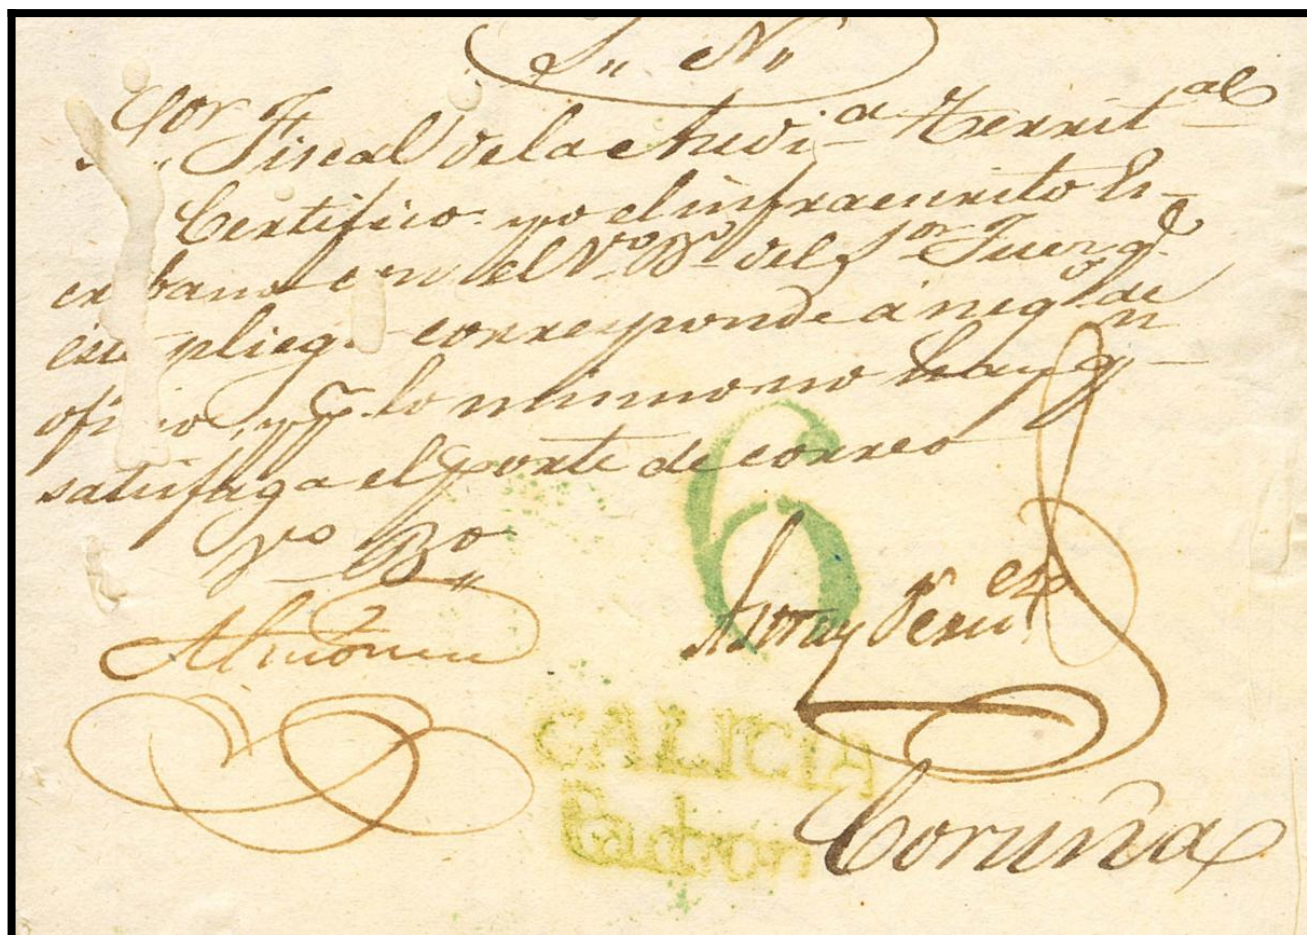 S,, N,,
Sor Fiscal de la Audi.a Territal
Certifico yo el infraescrito Es-
cribano con el Vo Bo del Sor Juez qe
este pliego corresponde á nego de
oficio, y pr lo mismo no hay qn
satisfaga el porte de correo
Vo Bo,,
6
CALICIA
Padron
Coruña